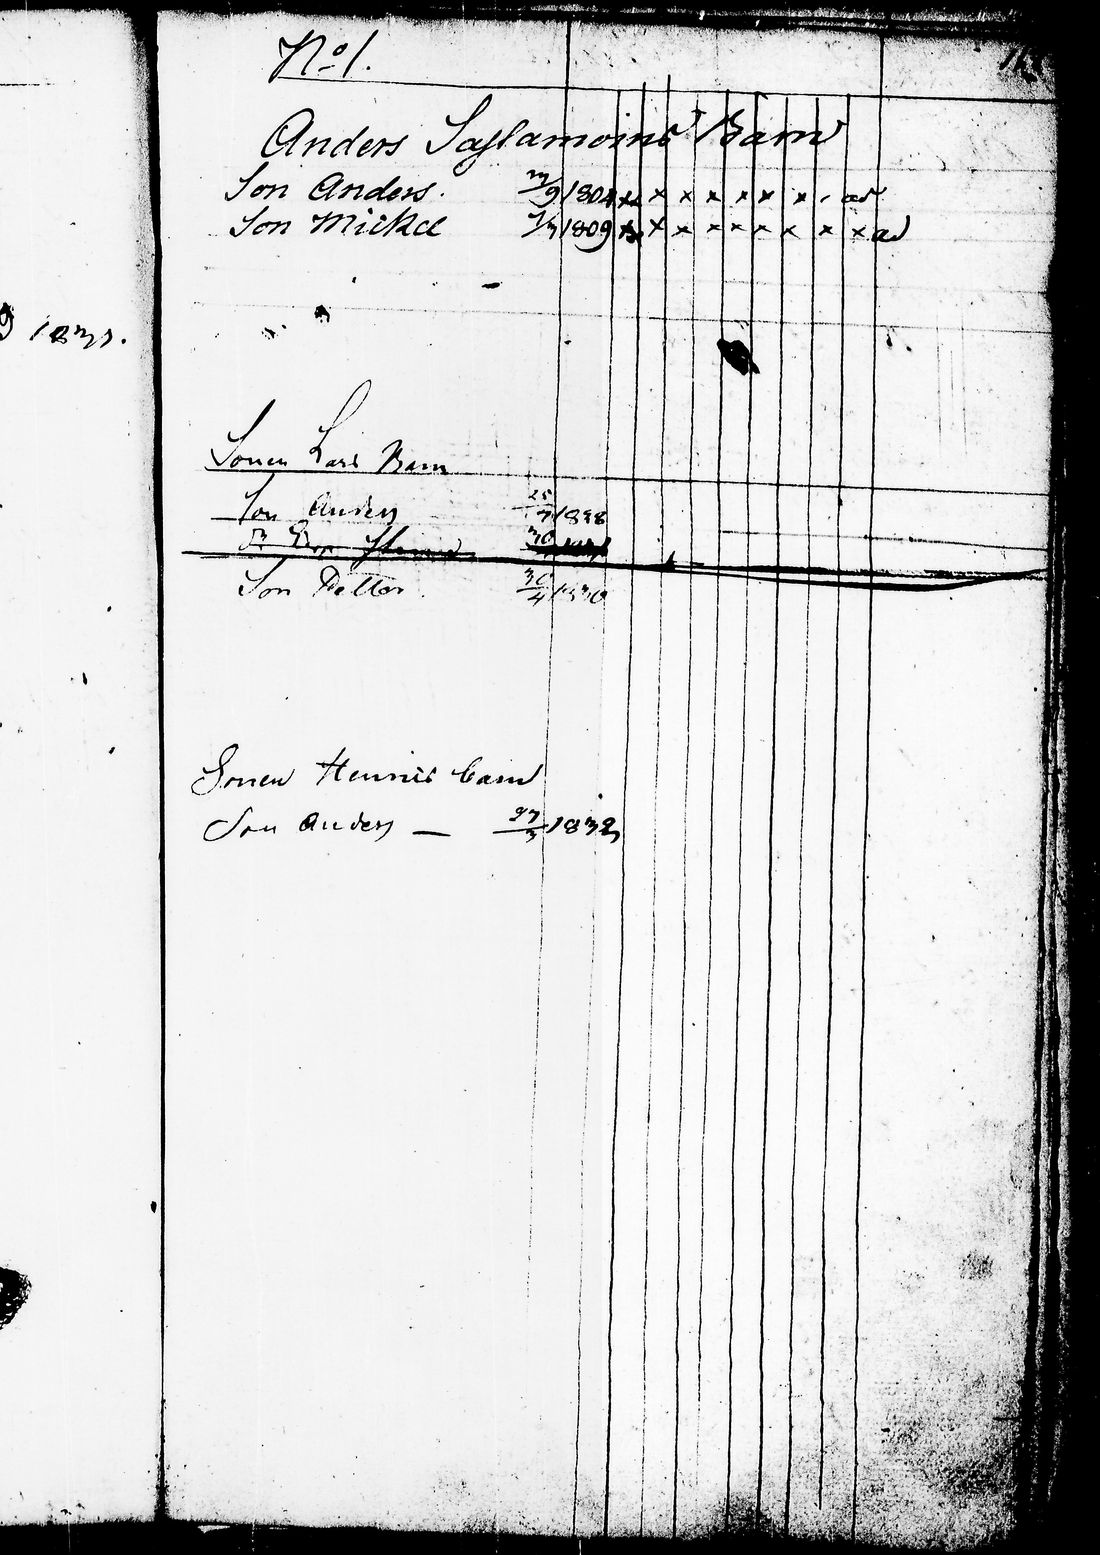 No 1.
Anders Barn
Son Anders. /9 1804 x x x x x x x ad
Son Mickel 1809 x x x x x x x x x ad
Sonen Lars Barn
Son Anders 25/7 1828
Son Petter. 30/4 1830
Sonen Henrics barn
Son Anders — 27/3 1832